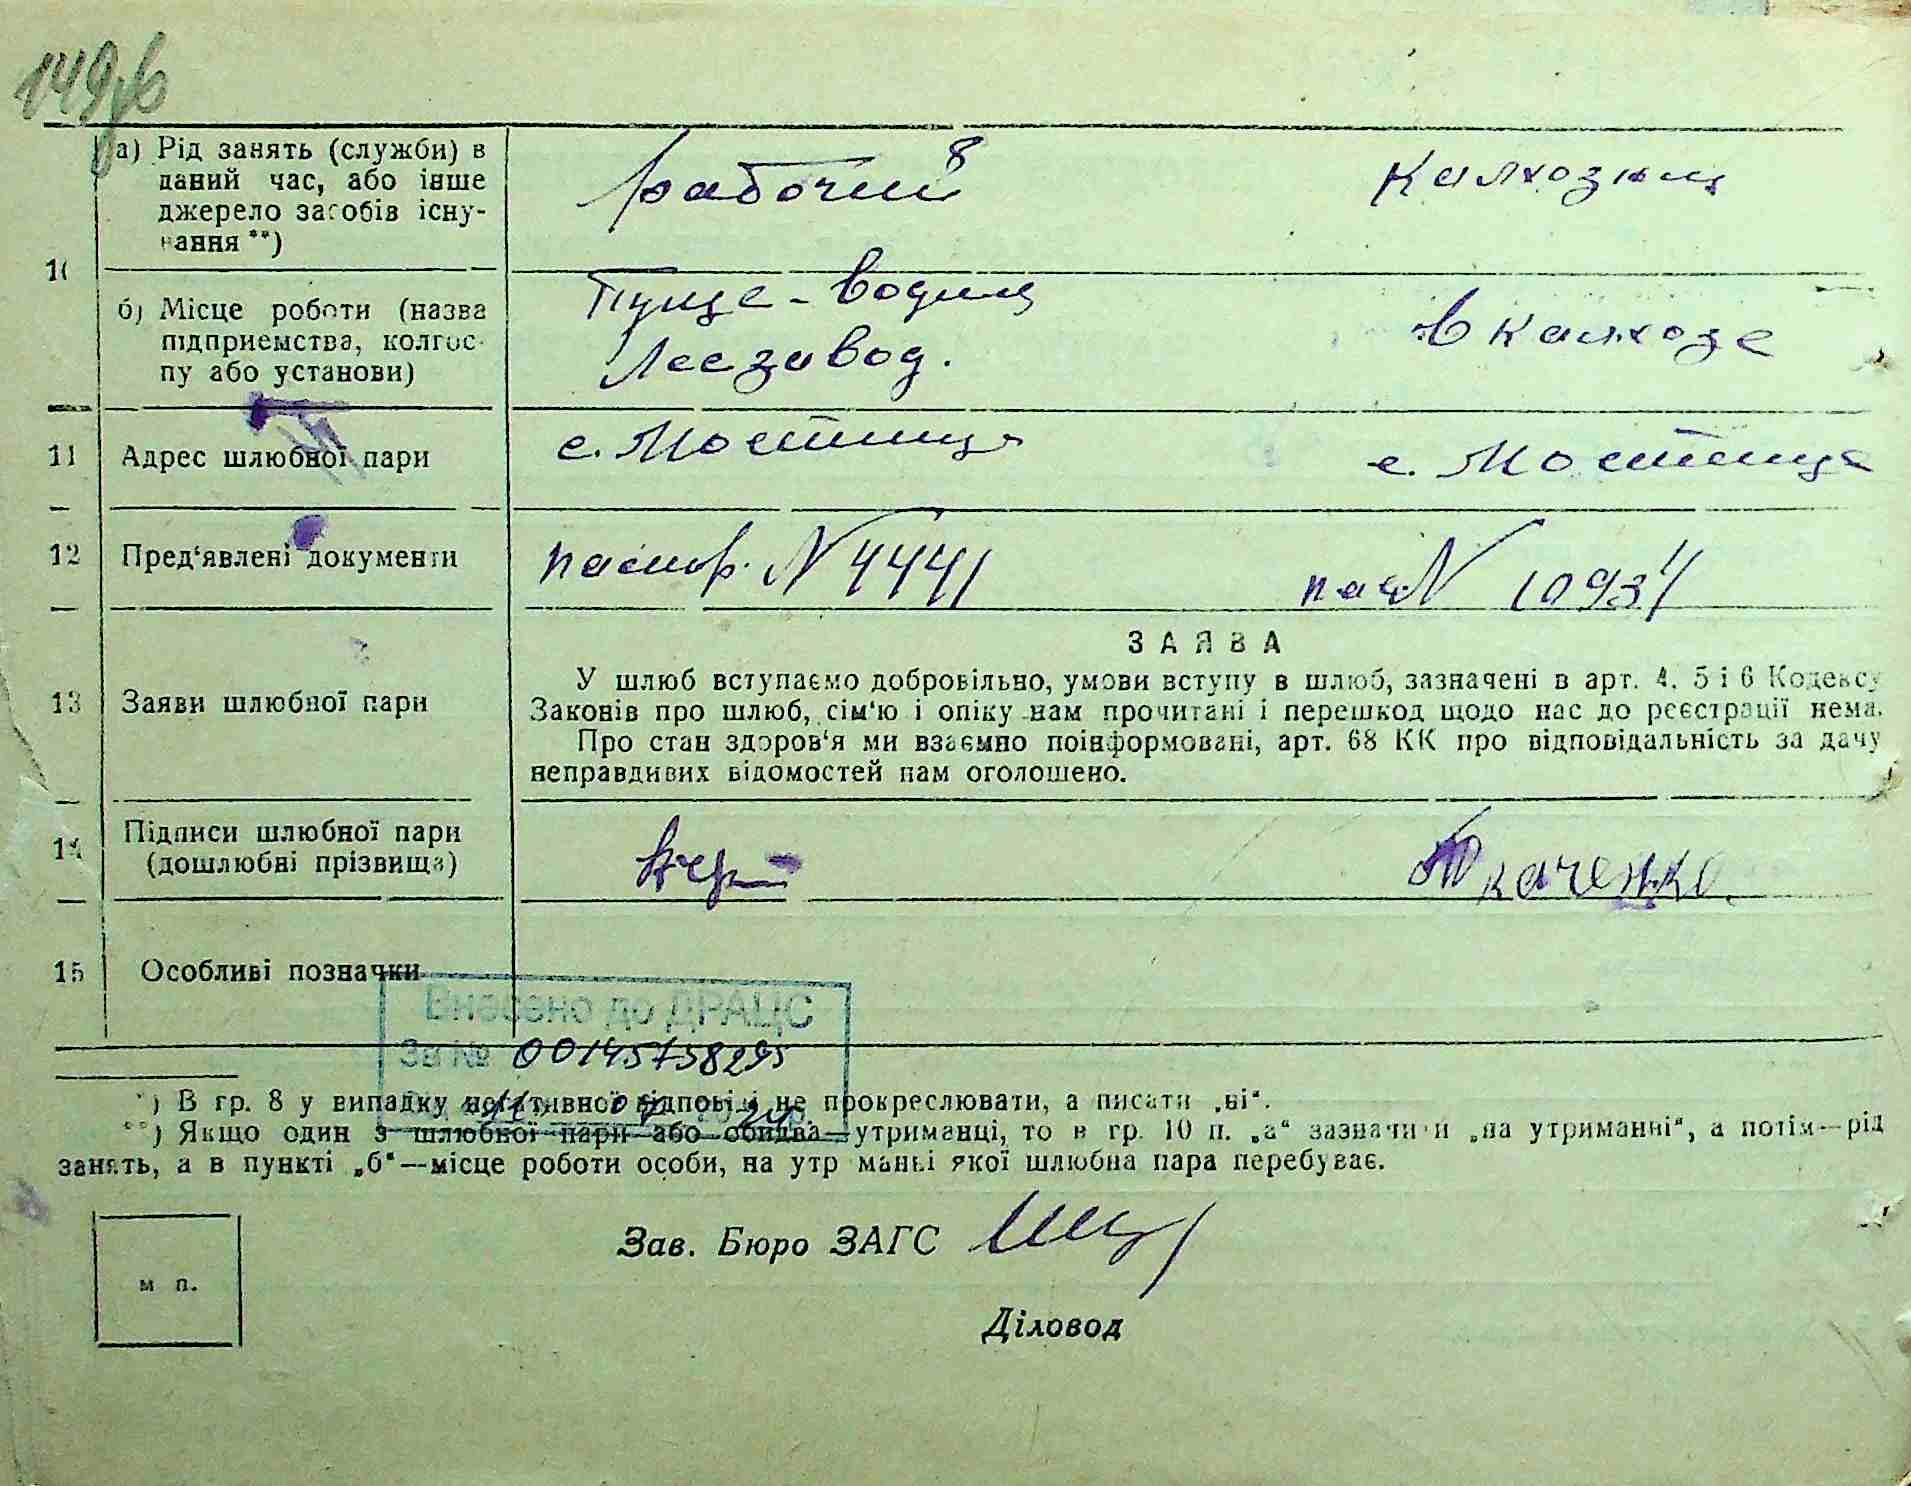 149зв
а) Рід занять (служби) в даний час, або інше джерело засобів існування **)
рабочий
калхозниц
10
б) Місце роботи (назва підприємства, колгоспу або установи)
Пуще-водиц
Лесзавод.
в калхозе
11 Адрес шлюбної пари
с. Мостище
с. Мостище
12 Пред'явлені документи
паспор. № 4441
пас №
13 Заяви шлюбної пари
ЗАЯВА
У шлюб вступаємо добровільно, умови вступу в шлюб, зазначені в арт. 4, 5 і 6 Кодексу
Законів про шлюб, сім'ю і опіку нам прочитані і перешкод щодо нас до реєстрації нема.
Про стан здоров'я ми взаємно поінформовані, арт. 68 КК про відповідальність за дачу
неправдивих відомостей нам оголошено.
14 Підписи шлюбної пари
(дошлюбні прізвища)
Ткаченко
15 Особливі позначки
Внесено до ДРАЦС
За № 00145758295
*) В гр. 8 у випадку негативної відповіді не прокреслювати, а писати „ні“.
**) Якщо один з шлюбної пари або обидва—утриманці, то в гр. 10 п. „а“ зазначити „на утриманні“, а потім—рід
занять, а в пункті „б“—місце роботи особи, на утриманні якої шлюбна пара перебуває.
Зав. Бюро ЗАГС
м п.
Діловод